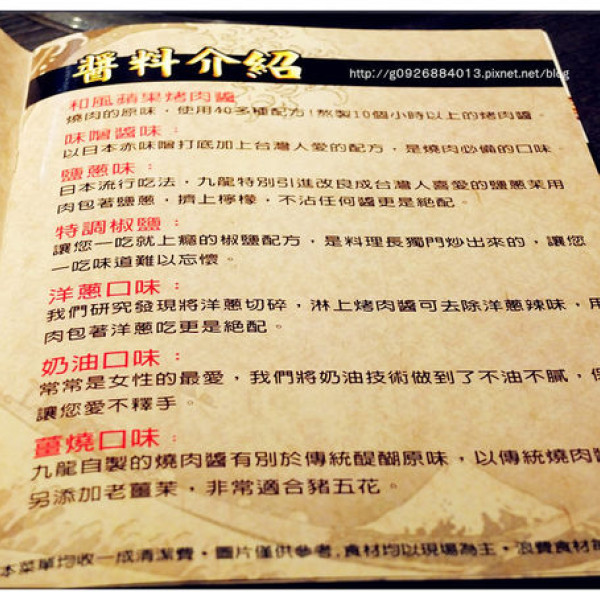 醬料介紹
http://g0926884013.pixnet.net/blog
和風蘋果烤肉醬
燒肉的原味，使用40多種配方！熬製10個小時以上的烤肉醬。
味噌醬味：
以日本赤味噌打底加上台灣人愛的配方，是燒肉必備的口味
鹽蔥味：
日本流行吃法，九龍特別引進改良成台灣人喜愛的鹽蔥菜用
肉包著鹽蔥，擠上檸檬，不沾任何醬更是絕配。
特調椒鹽：
讓您一吃就上癮的椒鹽配方，是料理長獨門炒出來的，讓您
一吃味道難以忘懷。
洋蔥口味：
我們研究發現將洋蔥切碎，淋上烤肉醬可去除洋蔥辣味，用
肉包著洋蔥吃更是絕配。
奶油口味：
常常是女性的最愛，我們將奶油技術做到了不油不膩，保
讓您愛不釋手。
薑燒口味：
九龍自製的燒肉醬有別於傳統醍醐原味，以傳統燒肉醬
另添加老薑茉，非常適合豬五花。
本菜單均收一成清潔費。圖片僅供參考，食材均以現場為主。浪費食材